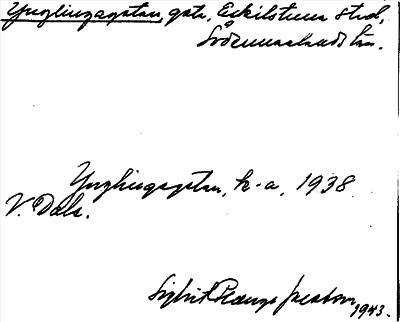 Ynglingagatan, gata, Eskilstuna stad,
Södermanlands län.
Ynglingagatan, k-a, 1938
V. Dala.
1943.